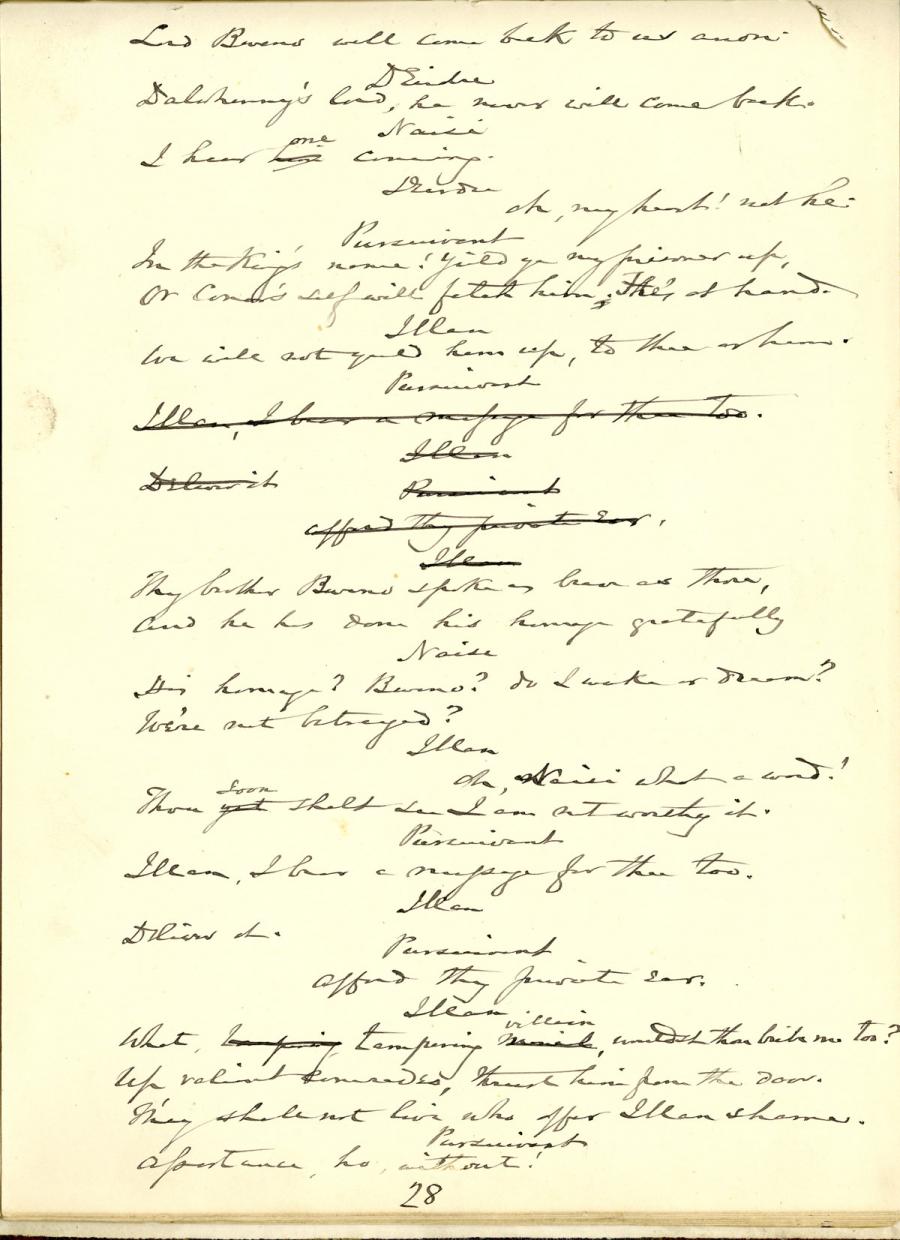 Lord Bueno will come back to us anon.
Deirdre
Dalwhinny's lord, he never will come back.
Naisi
I hear one coming.
Deirdre
Oh, my heart! not he.
Pursuivant
In the King's name! Yield ye my prisoner up,
Or Conor's self will fetch him; He's at hand.
Illan
We will not yield him up, to thee or him.
Pursuivant
Illan, I bear a message for thee too.
Illan
Deliver it
Pursuivant
afford thy private ear.
Illan
Thy brother Bueno spoke as brave as thou,
And he has done his homage gratefully
Naise
His homage? Bueno? do I wake or dream?
We're not betrayed?
Illan
Oh, Naisi what a word!
Thou yet soon shalt see I am not worthy it.
Pursuivant
Illan, I bear a message for thee too.
Illan
Deliver it.
Pursuivant
afford thy private ear.
Illan
What, tampering tampering villain, wouldst thou bribe me too?
Up valiant comrades, thrust him from the door.
They shall not live who offer Illan shame.
Pursuivant
Assistance, ho, without!
28